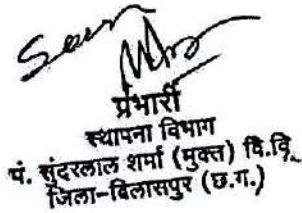 Seen
प्रभारी
स्थापना विभाग
पं. सुंदरलाल शर्मा (मुक्त) वि.वि.
जिला-बिलासपुर (छ.ग.)